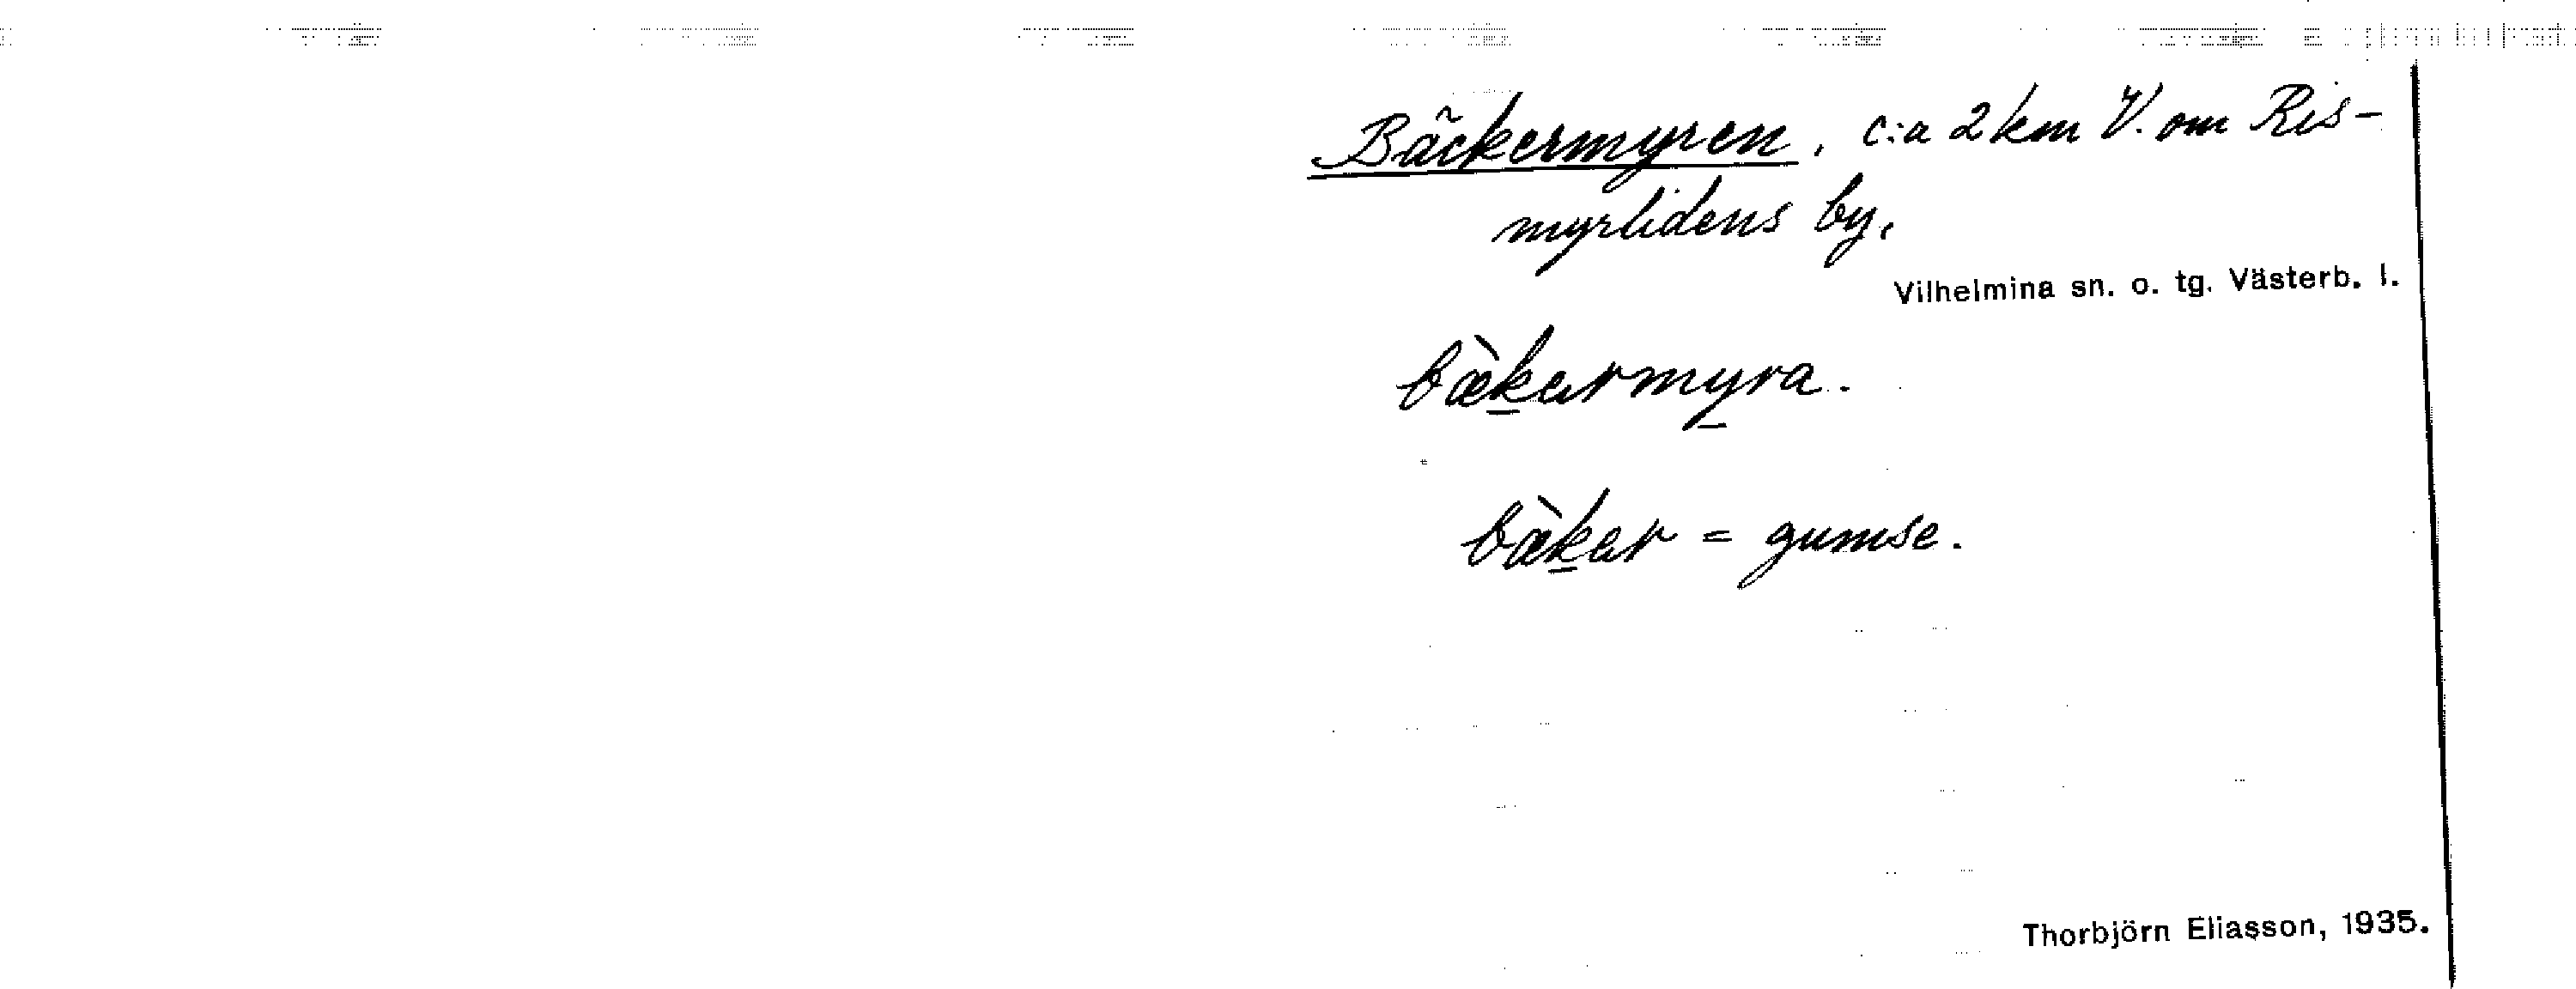 Bäckermyren, c:a 2 km V. om Ris-
myrlidens by,
Vilhelmina sn. o. tg. Västerb. l.
bæ̀karmyra.
bæ̀kar = gumse.
Thorbjörn Eliasson, 1935.